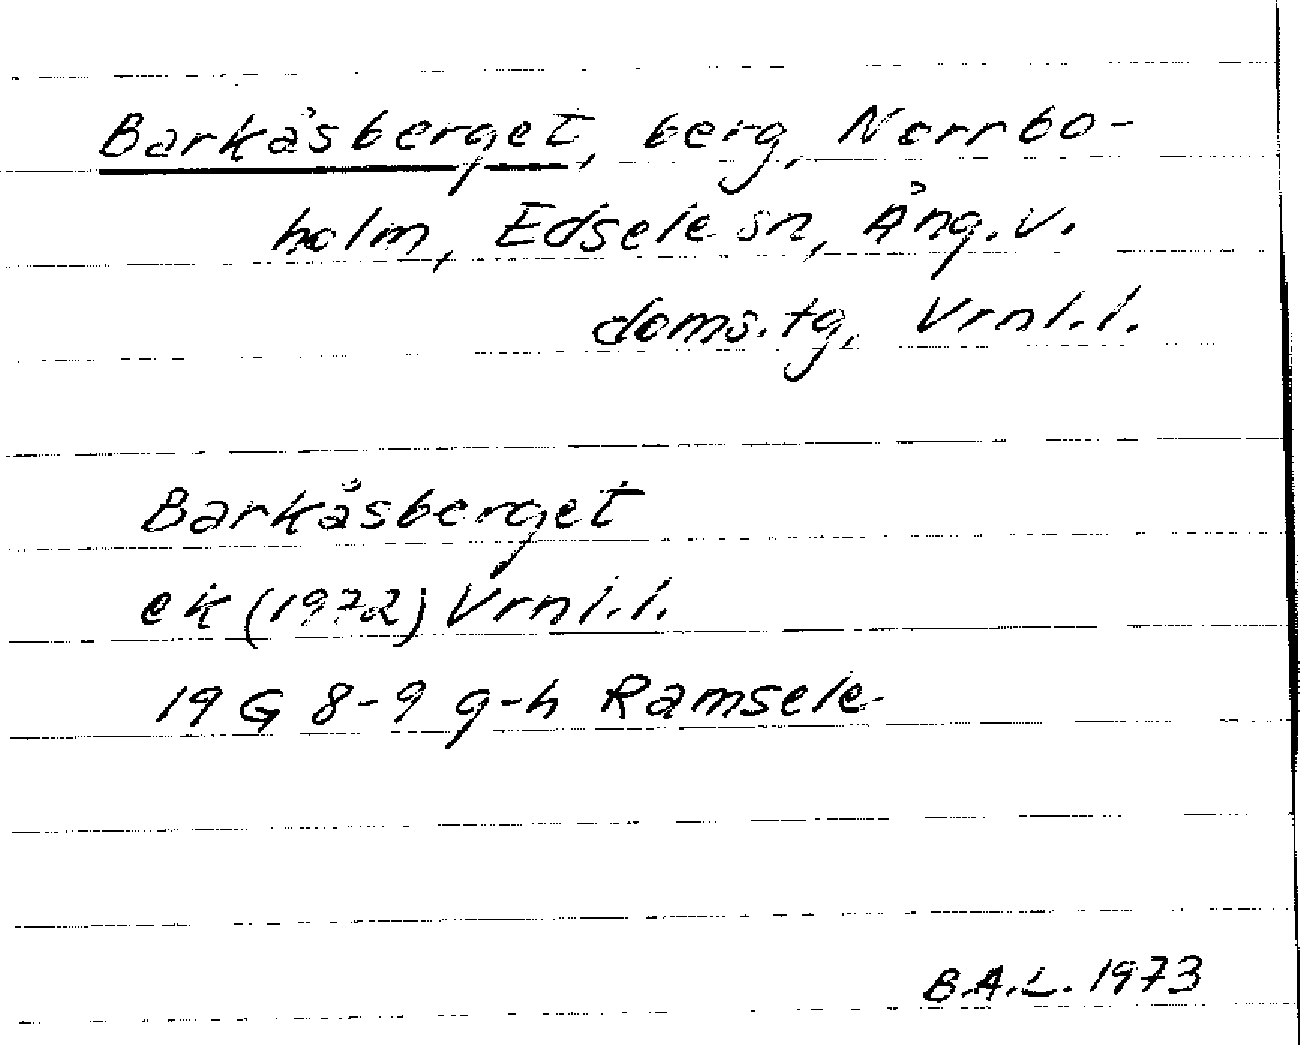 Barkåsberget, berg, Norrbo-
holm, Edsele sn, Ång.v.
doms.tg, Vrnl.l.
Barkåsberget
ek (1972) Vrnl.l.
19 G 8-9 g-h Ramsele
B.A.L. 1973